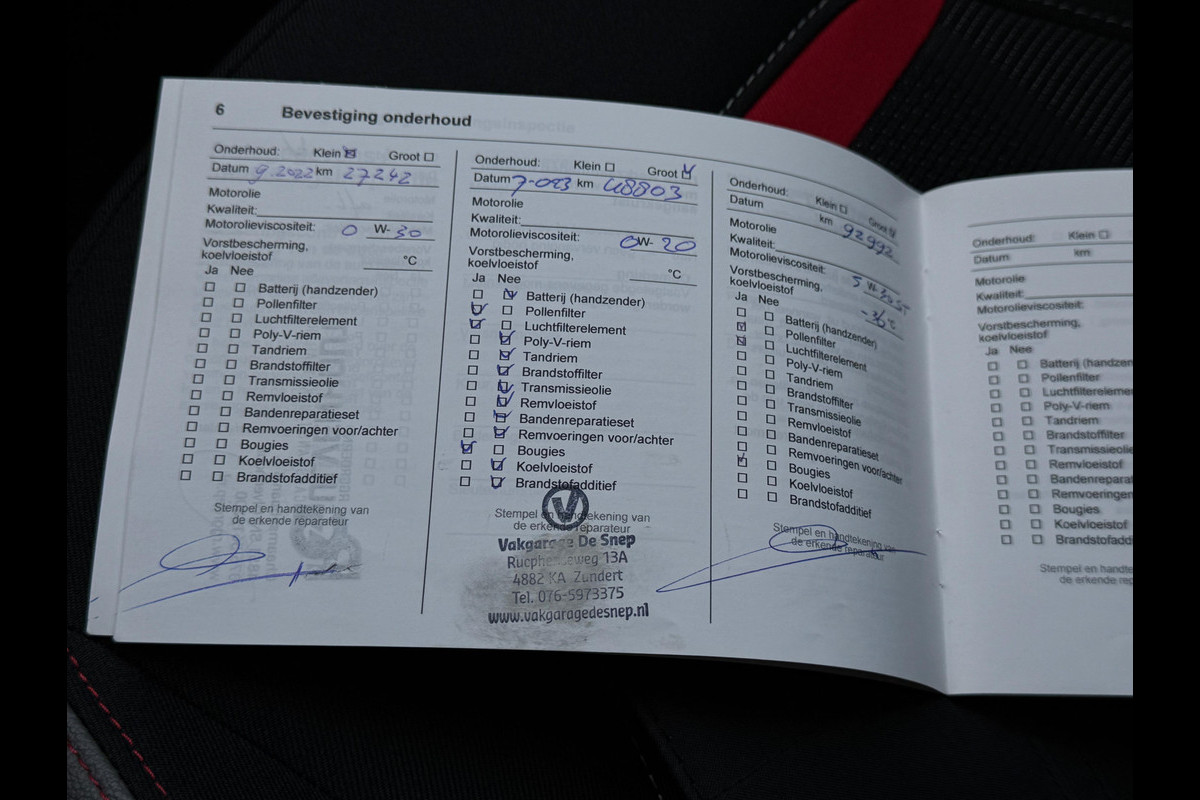 6
Bevestiging onderhoud
Onderhoud: Klein Groot
Datum 9.2022 km 27242
Motorolie
Kwaliteit:
Motorolieviscositeit: 0 W- 30
Vorstbescherming,
koelvloeistof °C
Ja Nee
Batterij (handzender)
Pollenfilter
Luchtfilterelement
Poly-V-riem
Tandriem
Brandstoffilter
Transmissieolie
Remvloeistof
Bandenreparatieset
Remvoeringen voor/achter
Bougies
Koelvloeistof
Brandstofadditief
Stempel en handtekening van
de erkende reparateur
Onderhoud: Klein Groot
Datum 7-023 km 48803
Motorolie
Kwaliteit:
Motorolieviscositeit: 0 W- 20
Vorstbescherming,
koelvloeistof °C
Ja Nee
Batterij (handzender)
Pollenfilter
Luchtfilterelement
Poly-V-riem
Tandriem
Brandstoffilter
Transmissieolie
Remvloeistof
Bandenreparatieset
Remvoeringen voor/achter
Bougies
Koelvloeistof
Brandstofadditief
Stempel en handtekening van
de erkende reparateur
V
Vakgarage De Snep
4882 KA Zundert
Tel. 076-5973375
www.vakgaragedesnep.nl
Onderhoud: Klein Groot
Datum km 92992
Motorolie
Kwaliteit:
Motorolieviscositeit: 5 W-30
Vorstbescherming,
koelvloeistof
Ja Nee
Batterij (handzender)
Pollenfilter
Luchtfilterelement
Poly-V-riem
Tandriem
Brandstoffilter
Transmissieolie
Remvloeistof
Bandenreparatieset
Remvoeringen voor/achter
Bougies
Koelvloeistof
Brandstofadditief
Stempel en handtekening van
de erkende reparateur
Onderhoud: Klein
Datum km
Motorolie
Kwaliteit:
Motorolieviscositeit:
Vorstbescherming,
koelvloeistof
Ja Nee
Batterij (handzen
Pollenfilter
Luchtfiltereleme
Poly-V-riem
Tandriem
Brandstoffilter
Transmissieolie
Remvloeistof
Bandenrepara
Remvoeringen
Bougies
Koelvloeistof
Brandstofaddi
Stempel en hand
de erkende rep